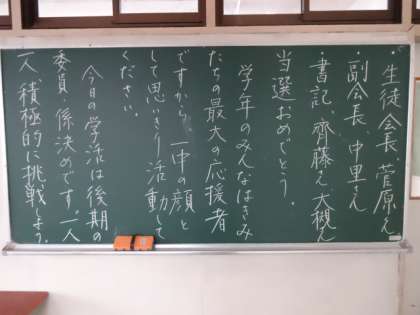 ・生徒会長、菅原さん
・副会長、中里さん
・書記、齊藤さん、大槻さん
当選おめでとう。
学年のみんなはきみ
たちの最大の応援者
ですから、一中の顔と
して思いきり活動して
ください。
今日の学活は後期の
委員・係決めです。一人
一人、積極的に挑戦しよう。